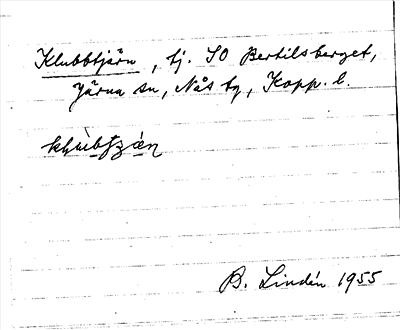 Klubbtjärn, tj. SO Bertilsberget,
Järna sn, Nås by, Kopp. l.
B. Lindén 1955